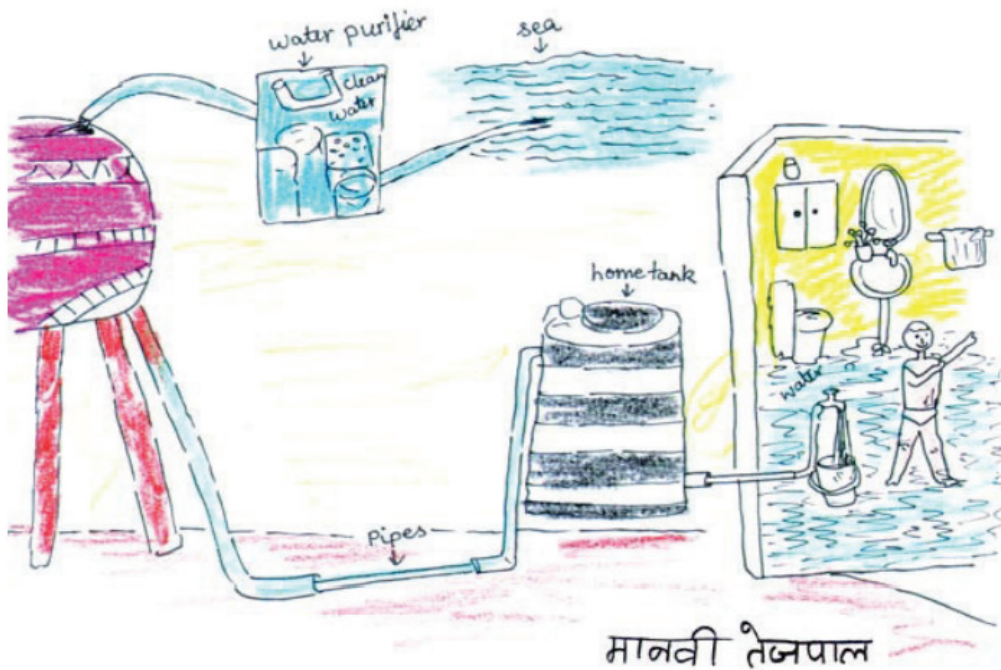 water purifier
sea
clean
water
home tank
water
Pipes
मानवी तेजपाल